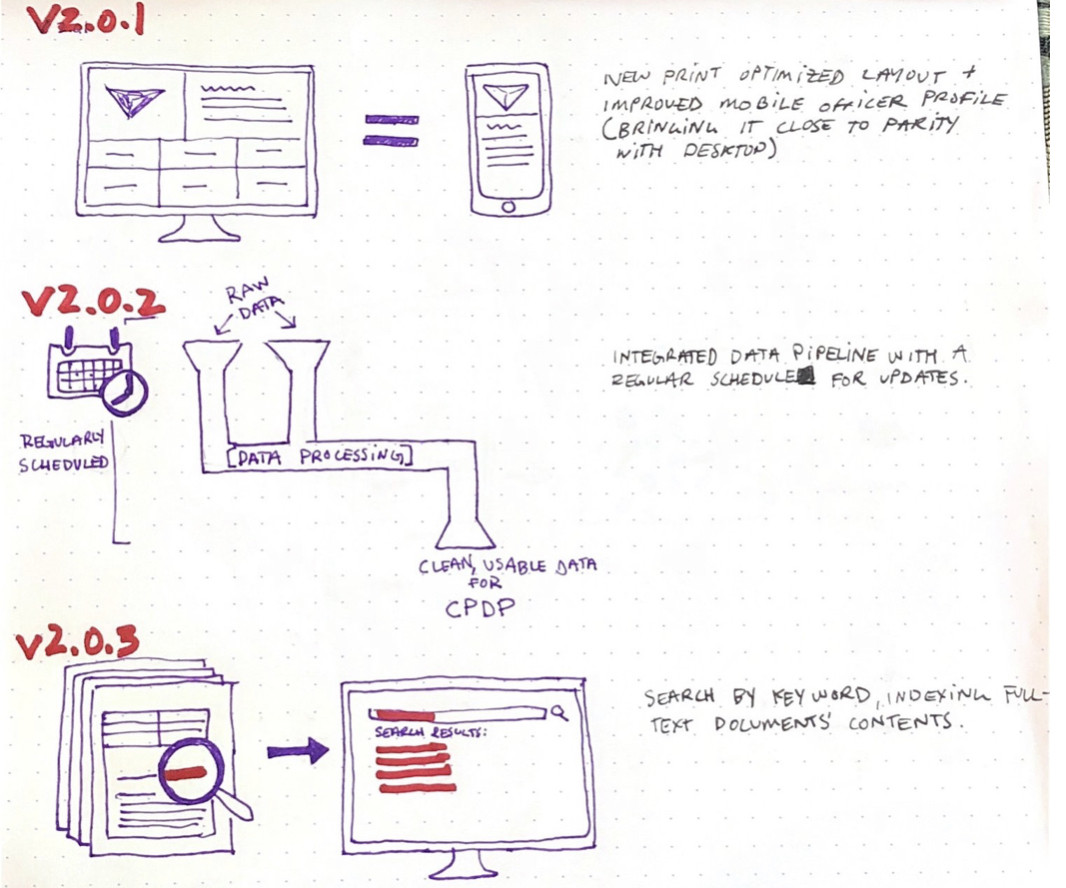 V2.0.1
NEW PRINT OPTIMIZED LAYOUT +
IMPROVED MOBILE OFFICER PROFILE
(BRINGING IT CLOSE TO PARITY
WITH DESKTOP)
V2.0.2
RAW
DATA
REGULARLY
SCHEDULED
[DATA PROCESSING]
CLEAN, USABLE DATA
FOR
CPDP
INTEGRATED DATA PIPELINE WITH A
REGULAR SCHEDULE FOR UPDATES.
V2.0.3
SEARCH RESULTS:
SEARCH BY KEYWORD, INDEXING FULL-
TEXT DOCUMENTS' CONTENTS.